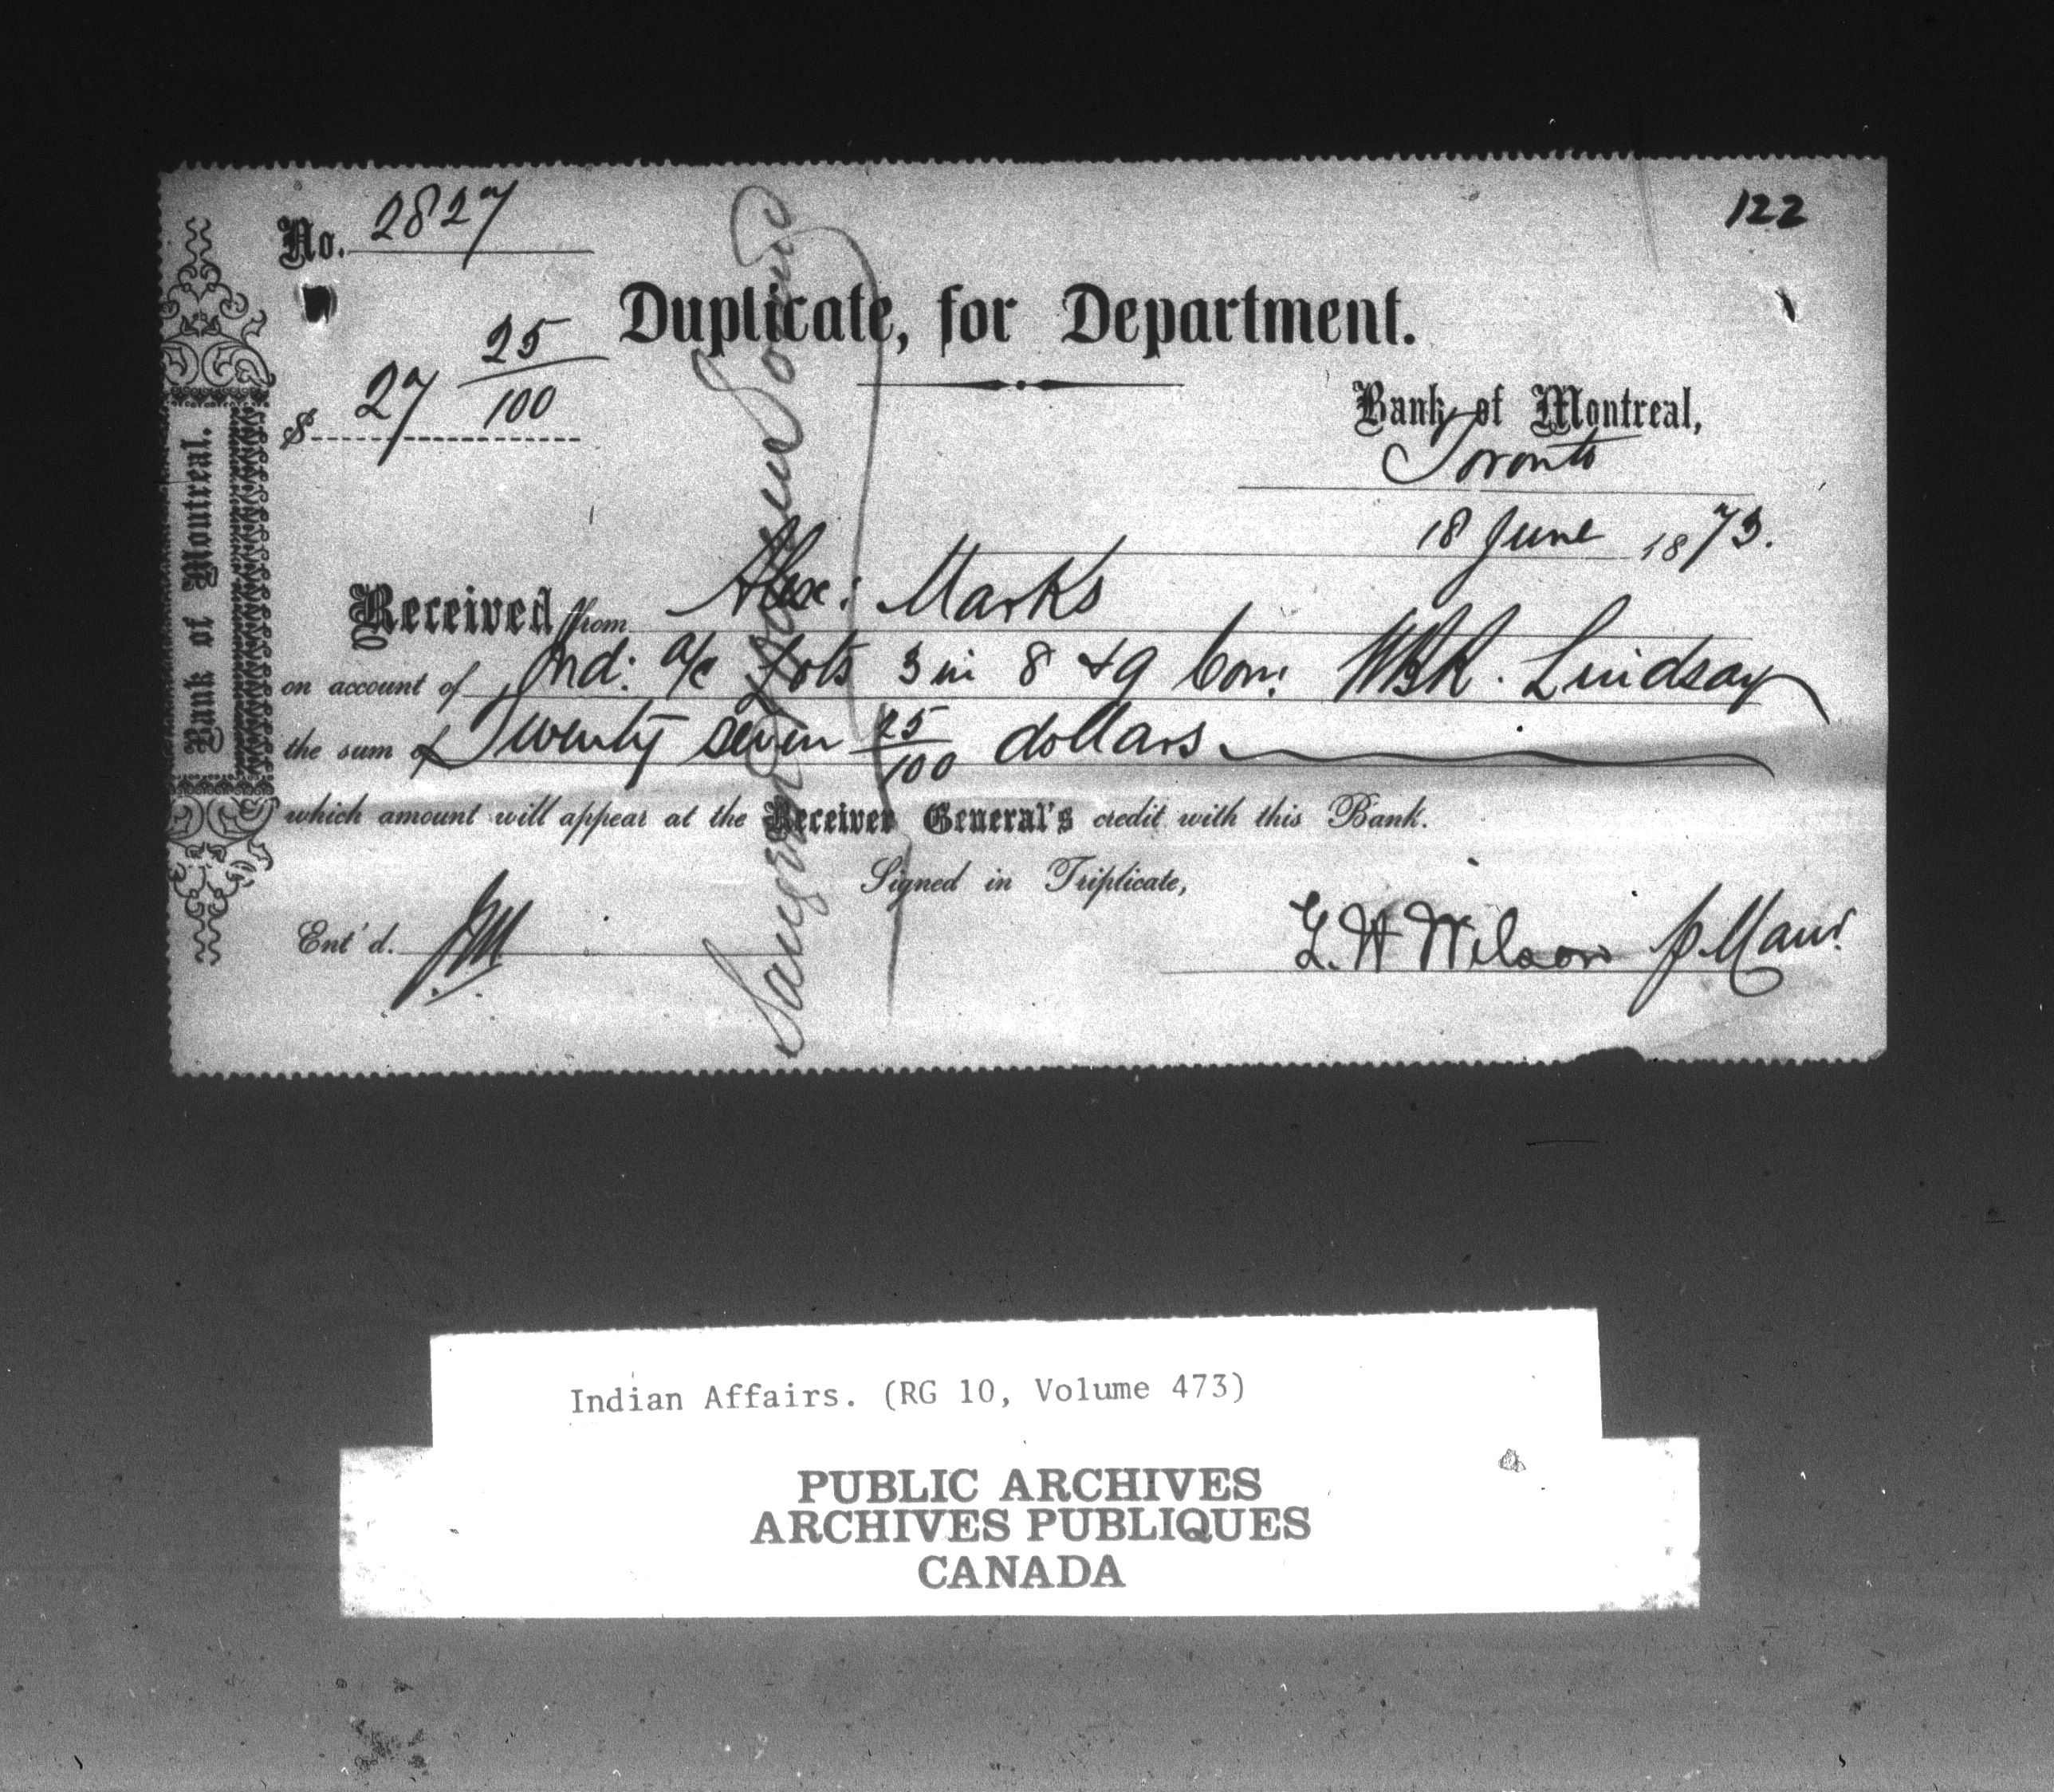 No. 2827
122
Duplicate, for Department.
$ 27 25/100
Bank of Montreal,
Toronto
18 June 1873.
Received from Alex: Marks
on account of Ind: a/c Lots 3 in 8 & 9 Con: WBR. Lindsay
the sum of Twenty seven 25/100 dollars
which amount will appear at the Receiver General's credit with this Bank.
Signed in Triplicate,
Ent'd. JM
Z. W Wilson p Manr.
Bank of Montreal.
Saugeen
Indian Affairs. (RG 10, Volume 473)
PUBLIC ARCHIVES
ARCHIVES PUBLIQUES
CANADA